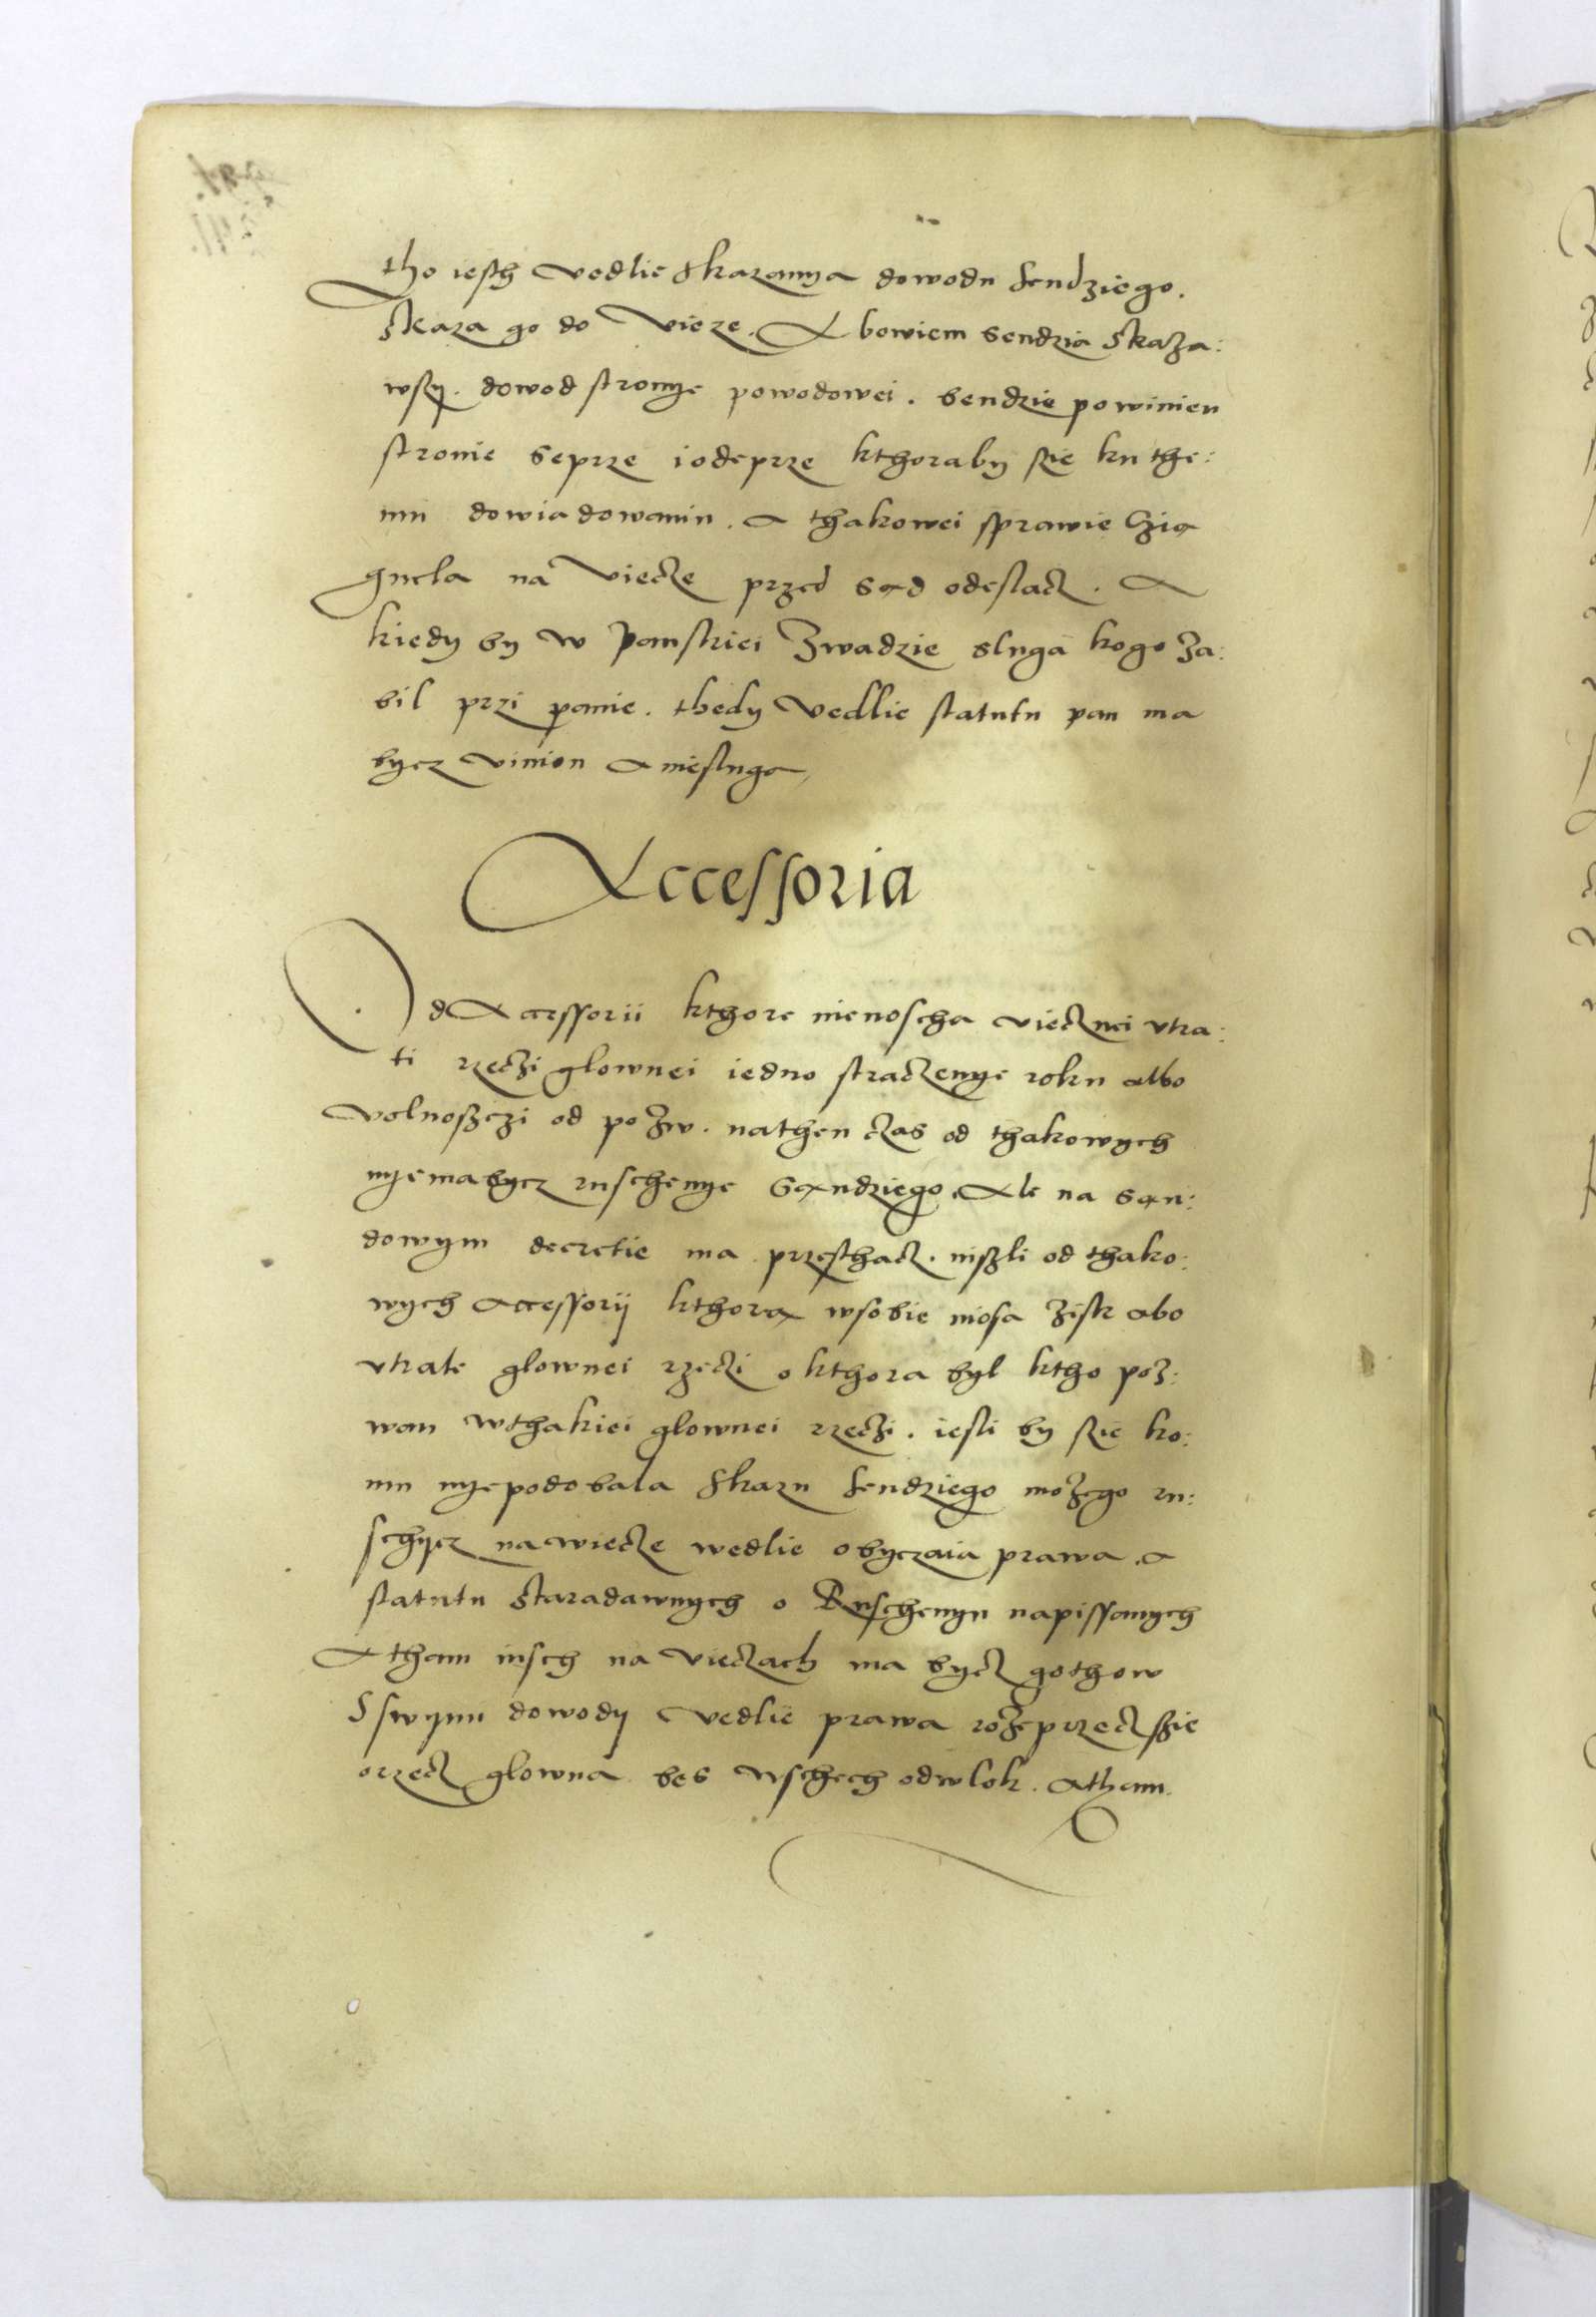 tho iesth vedlie skazanya dowodu sendziego.
skaza go do Vieze. A bowiem sendzia skaza:
wsy. dowod stronye powodowei. bendzie powinien
stronie seprze i odeprze kthoraby sie ku the:
mu dowiadowaniu. a thakowei sprawie
gnela na Viecze przed sąd odeslacz. A
kiedy by w Panskiei Zwadzie sluga kogo za:
bil przi panie. thedy Vedllie statutu pan ma
bycz vinion a niesluga
Accessoria
Od Accessorii kthore nienoscha viecznei vtra:
ti rzeczi glownei iedno straczenye roku albo
volnosczi od pozw. nathen czas od thakowych
nyemabycz ruschenye sąndziego. Ale na sąn:
dowym decretie ma przesthacz. niszli od thako:
wych accessorij kthorą wsobie niosa zisk abo
vtrate glownei rzeczi o kthora byl ktho poz:
wan wthakiei glownei rzeczi. iesli by sie ko:
mu nyepodobala skazn sendziego mozego ru:
schycz nawiecze wedlie obyczaia prawa. a
statutu staradawnych o Ruschenyu napissanych
A tham iusch na vieczach ma bycz gothow
Sswymi dowody vedlie prawa rozeprzecz szie
orzecz glowna bes wschech odwlok. atham